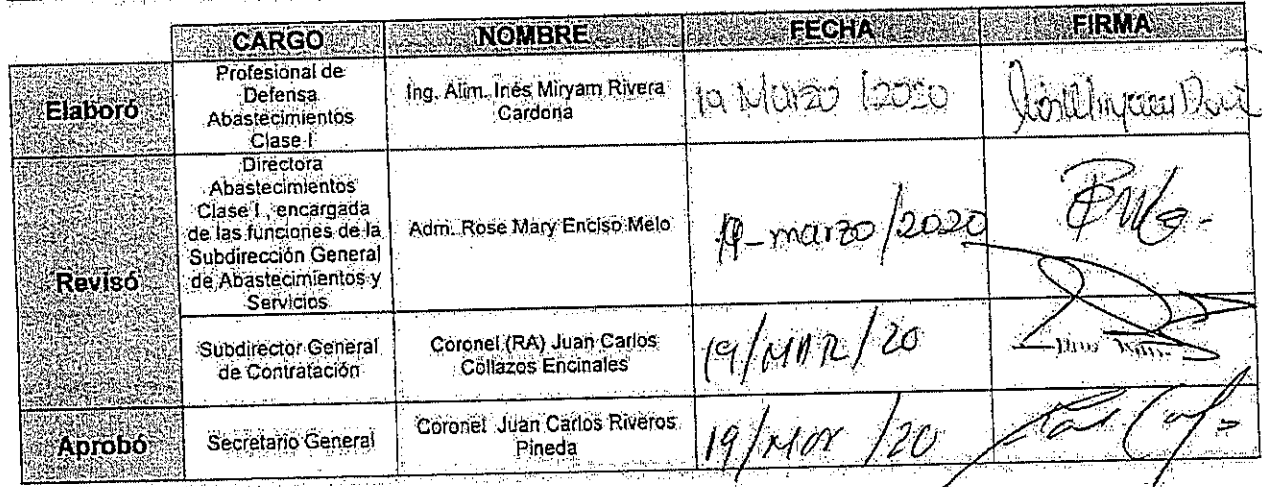 CARGO NOMBRE FECHA FIRMA
Elaboró
Profesional de
Defensa
Abastecimientos
Clase I
Ing. Alim. Inés Miryam Rivera
Cardona
19 Marzo /2020
Revisó
Directora
Abastecimientos
Clase I , encargada
de las funciones de la
Subdirección General
de Abastecimientos y
Servicios
Adm. Rose Mary Enciso Melo
19-marzo/2020
Subdirector General
de Contratación
Coronel (RA) Juan Carlos
Collazos Encinales
19/MAR/20
Aprobó
Secretario General
Coronel Juan Carlos Riveros
Pineda
19/Mar/20